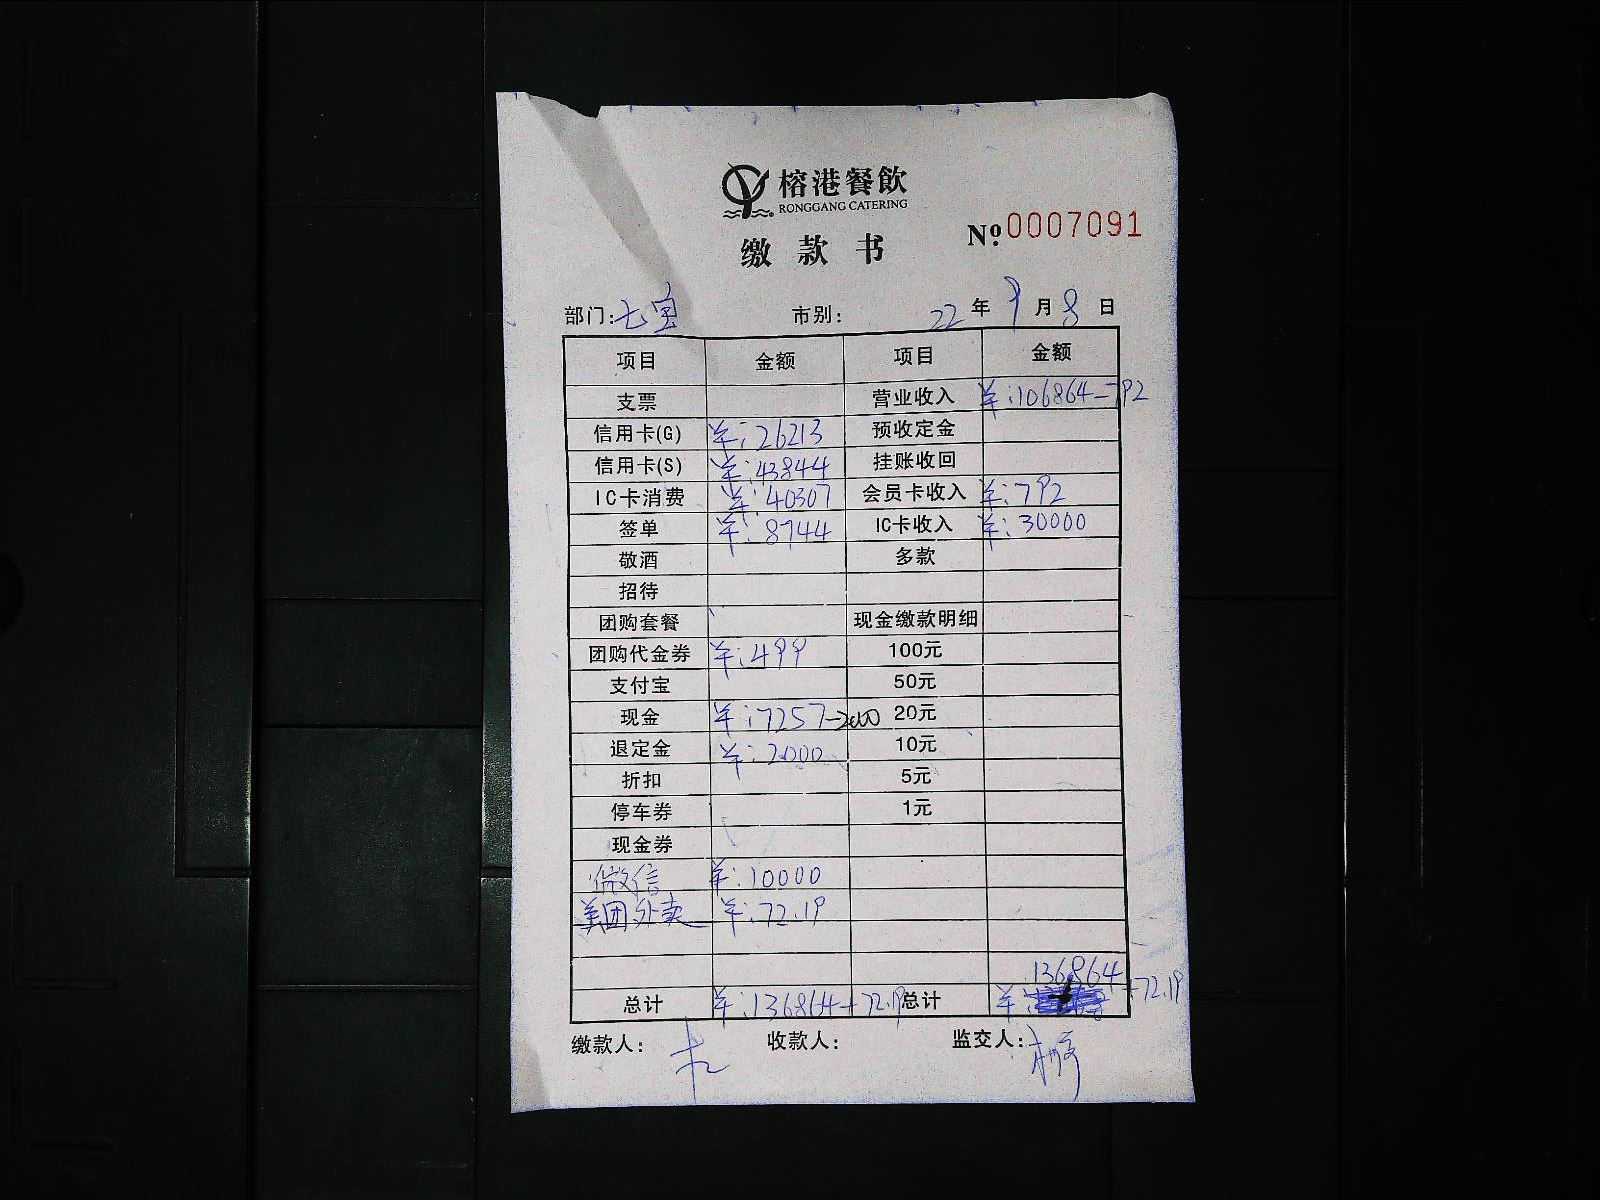 榕港餐飲
RONGGANG CATERING
缴款书 Nº.0007091
部门:七宝 市别: 22年9月8日
项目 金额 项目 金额
支票 营业收入 ¥:106864-792
信用卡(G) ¥:26213 预收定金
信用卡(S) ¥:43844 挂账收回
IC卡消费 ¥:40307 会员卡收入 ¥:792
签单 ¥:8744 IC卡收入 ¥:30000
敬酒 多款
招待
团购套餐 现金缴款明细
团购代金券 ¥:499 100元
支付宝 50元
现金 ¥:7257-2000 20元
退定金 ¥:2000 10元
折扣 5元
停车券 1元
现金券
微信 ¥:10000
美团外卖 ¥:72.19
总计 ¥:136864+72.19 总计 ¥:136864+72.19
缴款人: 收款人: 监交人: